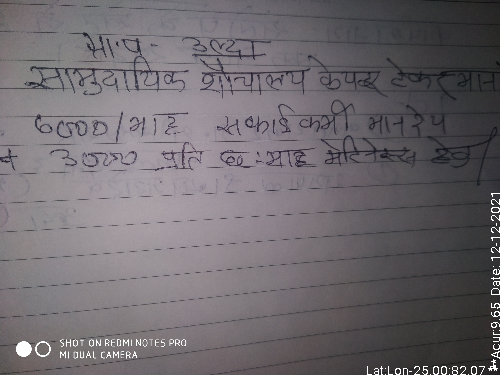 ग्रा.प - उल्दा
सामुदायिक शौचालय केयर टेकर मान
6000/माह सफाई कर्मी मानदेय
3000 प्रति छ:माह मेंटिनेन्स हेतु
SHOT ON REDMI NOTE5 PRO
MI DUAL CAMERA
Lat:Lon-25.00:82.07
**Acur:9.65 Date: 12-12-2021